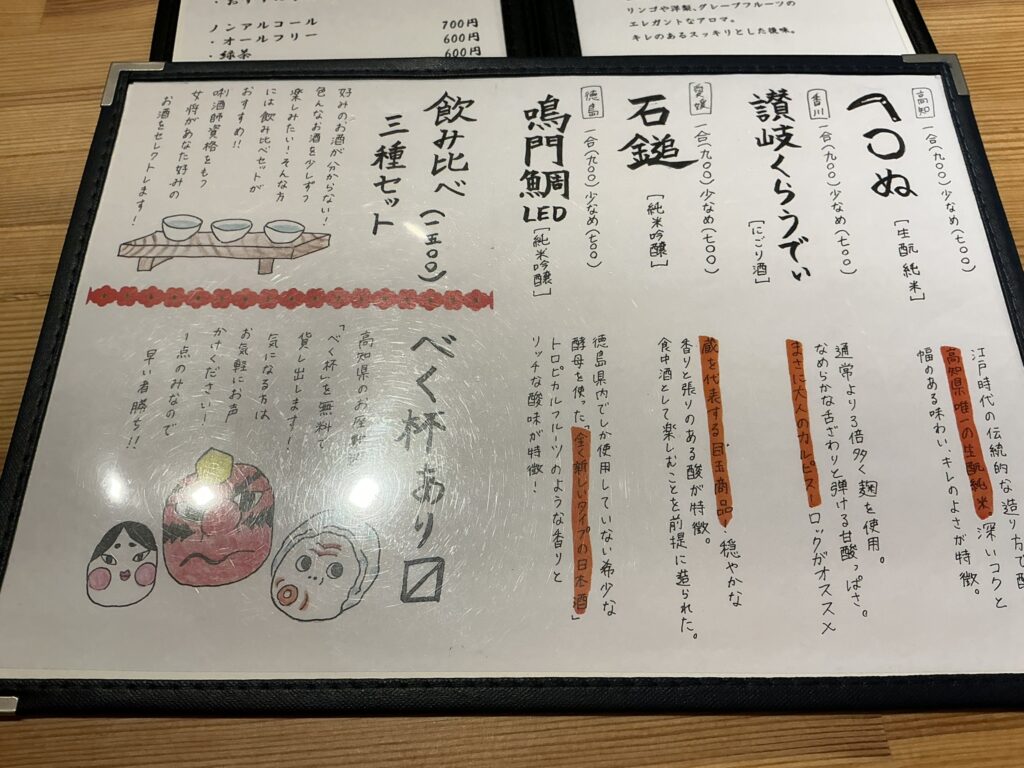 ノンアルコール 700円
・オールフリー 600円
・緑茶 600円
リンゴや洋梨、グレープフルーツの
エレガントなアロマ。
キレのあるスッキリとした後味。
高知 一合(九〇〇)少なめ(七〇〇)
[生酛純米]
江戸時代の伝統的な造り方で
高知県唯一の生酛純米。深いコクと
幅のある味わい、キレのよさが特徴。
香川 一合(九〇〇)少なめ(七〇〇)
讃岐くらうでぃ
[にごり酒]
通常より3倍多く麹を使用。
なめらかな舌ざわりと弾ける甘酸っぱさ。
まさに大人のカルピスー ロックがオススメ
愛媛 一合(九〇〇)少なめ(七〇〇)
石鎚
[純米吟醸]
蔵を代表する目玉商品ー 穏やかな
香りと張りのある酸が特徴。
食中酒として楽しむことを前提に造られた。
徳島 一合(九〇〇)少なめ(七〇〇)
鳴門鯛
LED
[純米吟醸]
徳島県内でしか使用していない希少な
酵母を使った「全く新しいタイプの日本酒」
トロピカルフルーツのような香りと
リッチな酸味が特徴!
飲み比べ(一五〇〇)
三種セット
好みのお酒が分からない!
色んなお酒を少しずつ
楽しみたい!そんな方
には飲み比べセットが
おすすめ!!
唎酒師資格をもつ
女将があなた好みの
お酒をセレクトします!
べく杯あり〼
高知県のお座敷
「べく杯」を無料で
貸し出します!
気になる方は
お気軽にお声
かけください!
1点のみなので
早い者勝ち!!